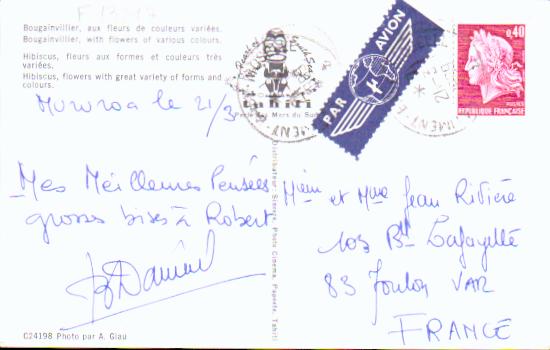 Bougainvillier, aux fleurs de couleurs variées.
Bougainvillier, with flowers of various colours.
Hibiscus, fleurs aux formes et couleurs très
variées.
Hibiscus, flowers with great variety of forms and
colours.
Mururoa le 21/3
Mes Meilleures Pensées
grosses bises à Robert
C24198 Photo par A. Giau
Distributeur: Sincere, Photo Cinema, Papeete, Tahiti
tahiti
Mers du Sud
PAR AVION
0,40
REPUBLIQUE FRANCAISE
et Mme Jean Rivière
103 Bd Lafayette
83 Toulon VAR
FRANCE